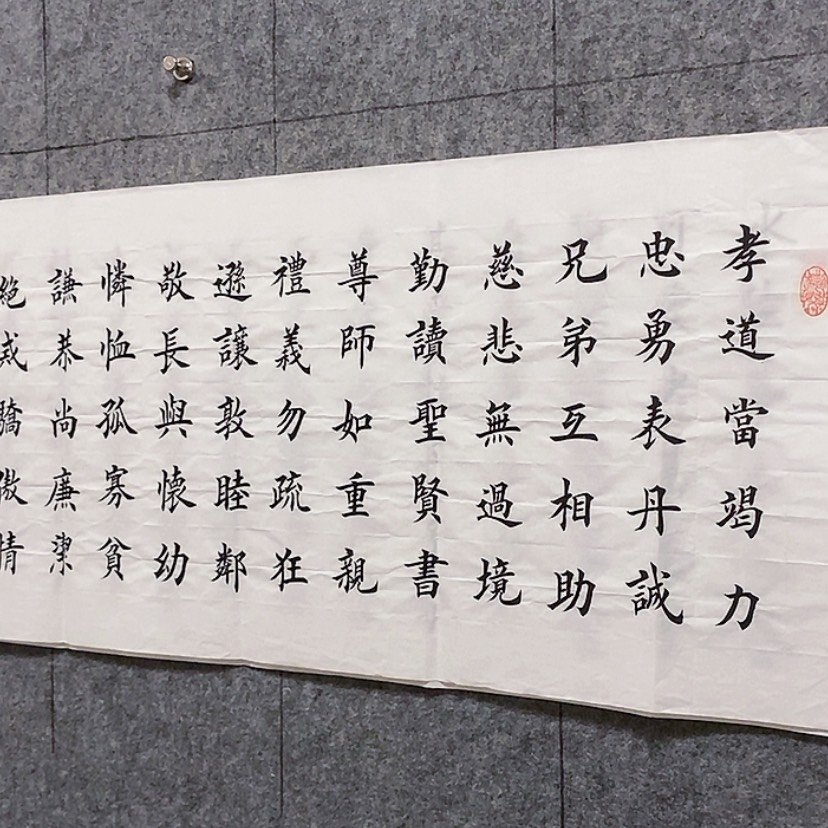 孝道當竭力
忠勇表丹誠
兄弟互相助
慈悲無過境
勤讀聖賢書
尊師如重親
禮義勿疏狂
遜讓敦睦鄰
敬長與懷幼
憐恤孤寡貧
謙恭尚廉潔
絕戒驕傲情